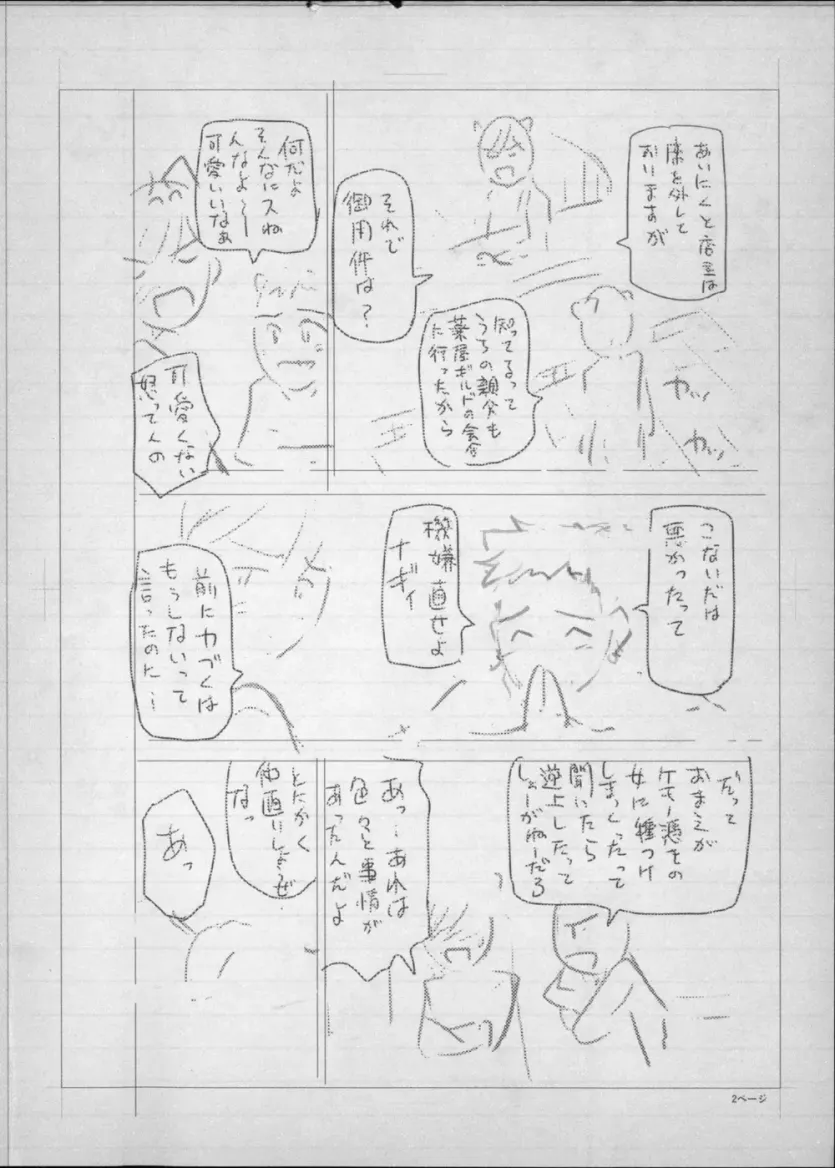 あいにくと店主は
席を外して
おりますが
それで
御用件は？
知ってるって
うちの親父も
薬屋ギルドの会合
に行ったから
カッ
カッ
何だよ
そんなにスね
んなよ〜
可愛いいなぁ
可愛くない
怒ってんの
こないだは
悪かったって
機嫌直せよ
ナギィ
前に力づくは
もうしないって
言ったのに…
だって
おまえが
女に種つけ
しまくったって
聞いたら
逆上したって
しょーがねーだろ
あっ…あれは
色々と事情が
あったんだよ
とにかく
仲直りしようぜ
なっ
あっ
2ページ